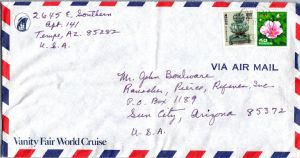 2645 E. Southern
Apt. 141
Tempe, AZ. 85282
U.S.A.
VIA AIR MAIL
Mr. John Boulware
Rauscher, Pierce, Refsnes, Inc.
P.O. Box 1189
Sun City, Arizona 85372
U.S.A.
Vanity Fair World Cruise